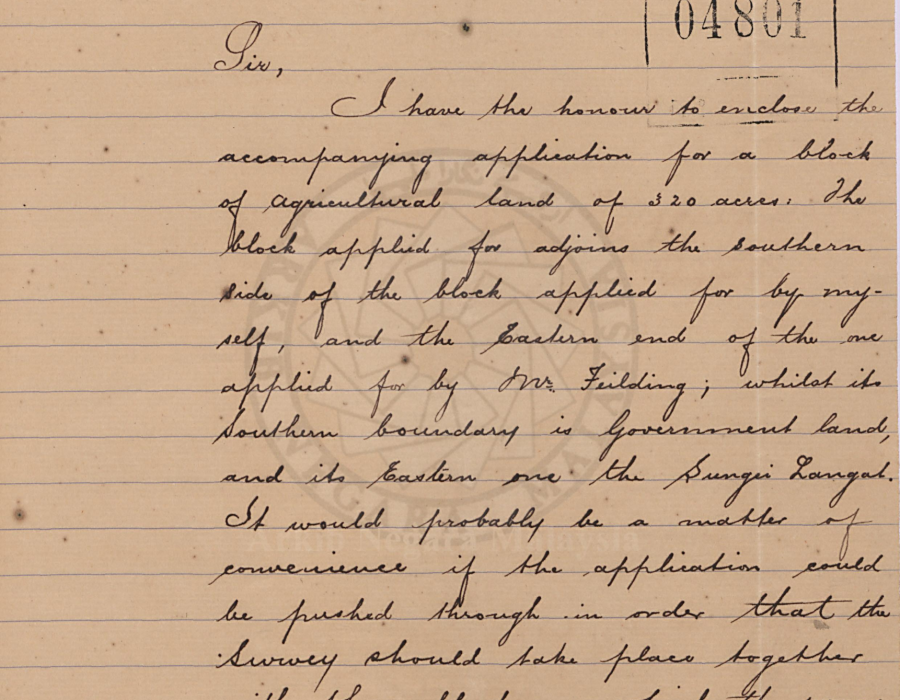 04801
Sir,
I have the honour to enclose the
accompanying application for a block
of agricultural land of 320 acres: The
block applied for adjoins the southern
side of the block applied for by my-
self, and the Eastern end of the one
applied for by Mr. Feilding; whilst its
Southern boundary is Government land,
and its Eastern one the Sungei Langat.
It would probably be a matter of
convenience if the application could
be pushed through in order that the
Survey should take place together
Arkib Negara Malaysia